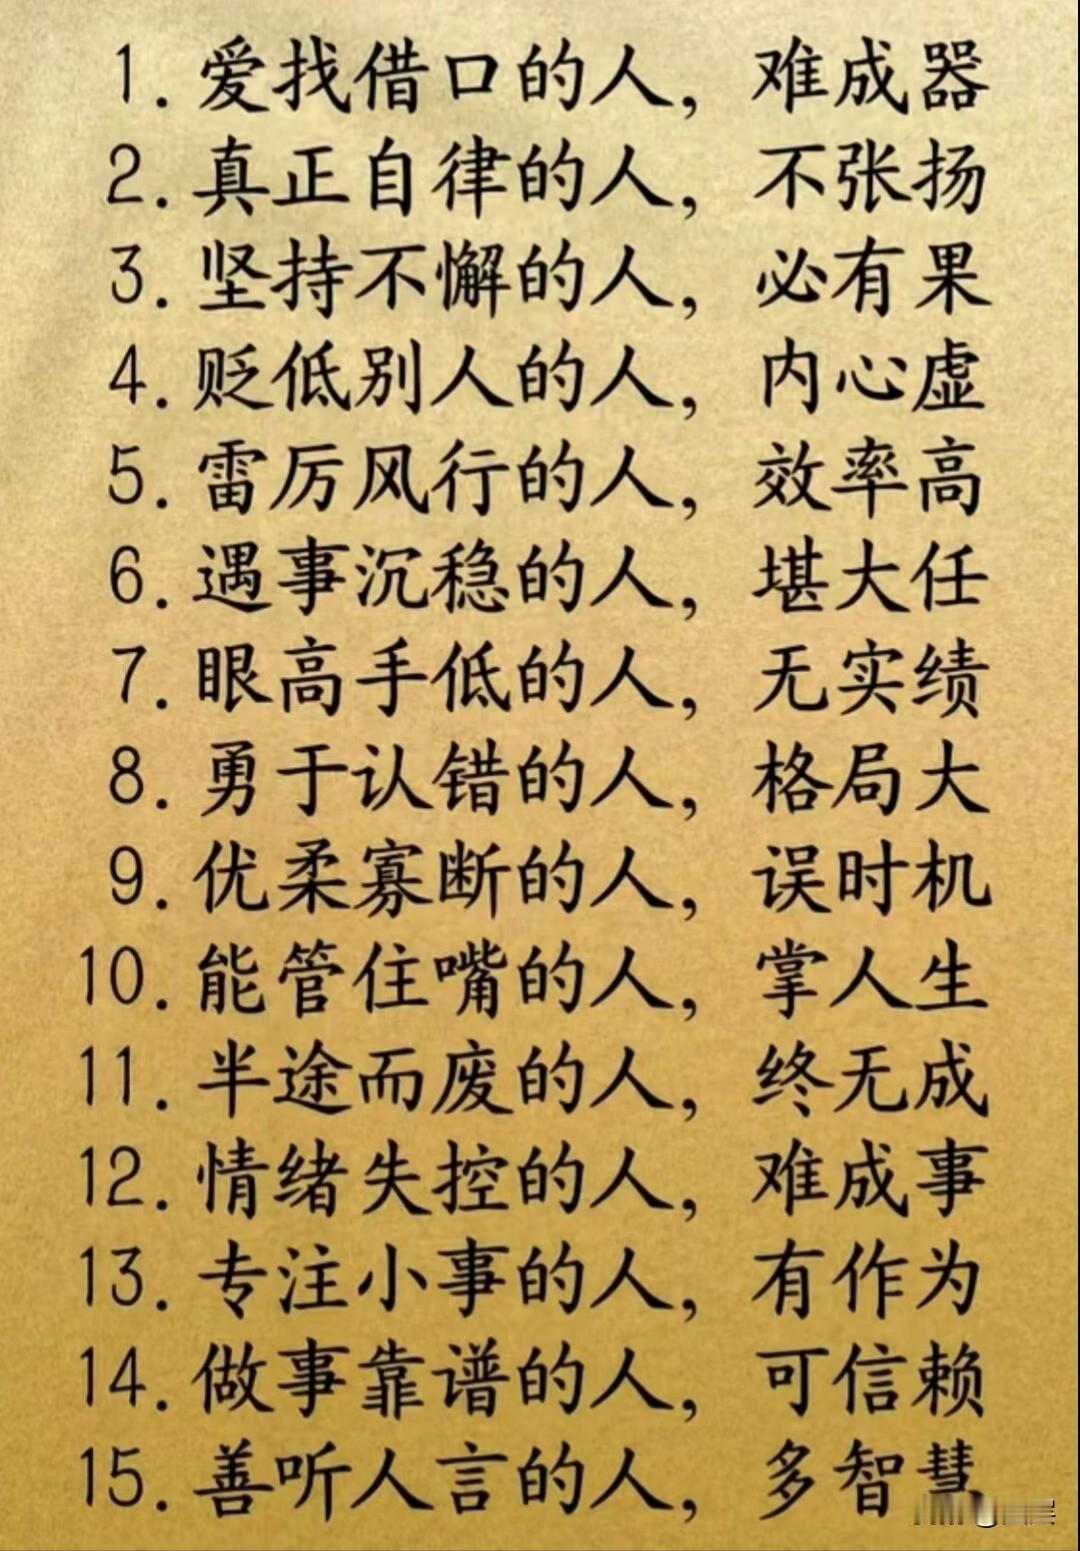 1.爱找借口的人，难成器
2.真正自律的人，不张扬
3.坚持不懈的人，必有果
4.贬低别人的人，内心虚
5.雷厉风行的人，效率高
6.遇事沉稳的人，堪大任
7.眼高手低的人，无实绩
8.勇于认错的人，格局大
9.优柔寡断的人，误时机
10.能管住嘴的人，掌人生
11.半途而废的人，终无成
12.情绪失控的人，难成事
13.专注小事的人，有作为
14.做事靠谱的人，可信赖
15.善听人言的人，多智慧